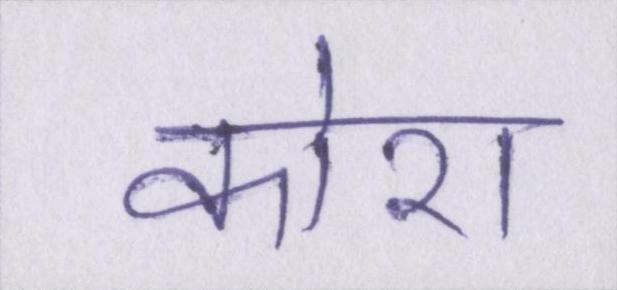 कोश